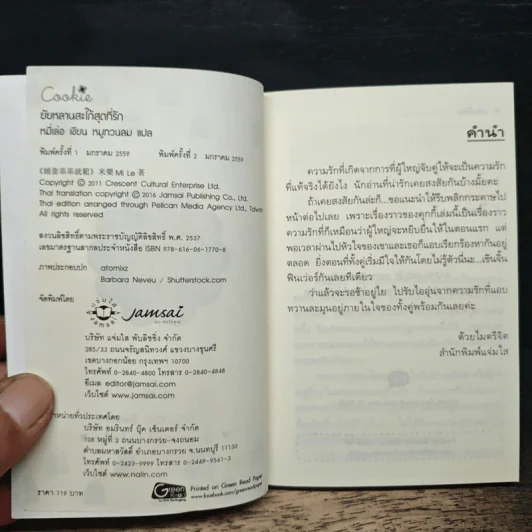 Cookie
ยัยหลานสะใภ้สุดที่รัก
หมี่เล่อ เขียน หมูกวนลม แปล
พิมพ์ครั้งที่ 1 มกราคม 2559 พิมพ์ครั้งที่ 2 มกราคม 2559
米樂 Mi Le 著
Copyright © 2011 Crescent Cultural Enterprise Ltd.
Thai translation copyright © 2016 Jamsai Publishing Co., Ltd.
Thai edition arranged through Pelican Media Agency Ltd., Taiw
All rights reserved
สงวนลิขสิทธิ์ตามพระราชบัญญัติลิขสิทธิ์ พ.ศ. 2537
เลขมาตรฐานสากลประจำหนังสือ ISBN 978-616-06-1770-8
ภาพประกอบปก atomixz
Barbara Neveu / Shutterstock.com
จัดพิมพ์โดย
jamsai
บริษัท แจ่มใส พับลิชชิ่ง จำกัด
285/33 ถนนจรัญสนิทวงศ์ แขวงบางขุนศรี
เขตบางกอกน้อย กรุงเทพฯ 10700
โทรศัพท์ 0-2840-4800 โทรสาร 0-2840-4848
อีเมล editor@jamsai.com
เว็บไซต์ www.jamsai.com
หน่ายทั่วประเทศโดย
บริษัท อมรินทร์ บุ๊ค เซ็นเตอร์ จำกัด
108 หมู่ที่ 2 ถนนบางกรวย-จงถนอม
ตำบลมหาสวัสดิ์ อำเภอบางกรวย จ.นนทบุรี 11130
โทรศัพท์ 0-2423-9999 โทรสาร 0-2449-9561-3
เว็บไซต์ www.naiin.com
ราคา 119 บาท
Green Read
Printed on Green Read Paper
คำนำ
ความรักที่เกิดจากการที่ผู้ใหญ่จับคู่ให้จะเป็นความรัก
ที่แท้จริงได้ยังไง นักอ่านที่น่ารักเคยสงสัยกันบ้างมั้ยคะ
ถ้าเคยสงสัยกันล่ะก็...ขอแนะนำให้รีบพลิกกระดาษไป
หน้าต่อไปเลย เพราะเรื่องราวของคุกกี้เล่มนี้เป็นเรื่องราว
ความรักที่ก็เหมือนว่าผู้ใหญ่จะหยิบยื่นให้ในตอนแรก แต่
พอเวลาผ่านไปหัวใจของเขาและเธอก็แอบเรียกร้องหากันอยู่
ตลอด ยิ่งตอนที่ทั้งคู่เริ่มมีใจให้กันโดยไม่รู้ตัวนี่นะ...เขินจิ้น
ฟินเว่อร์กันเลยทีเดียว
ว่าแล้วจะรอช้าอยู่ไย ไปรับไออุ่นจากความรักที่แอบ
หวานละมุนอยู่ภายในใจของทั้งคู่พร้อมกันเลยค่ะ
ด้วยไมตรีจิต
สำนักพิมพ์แจ่มใส